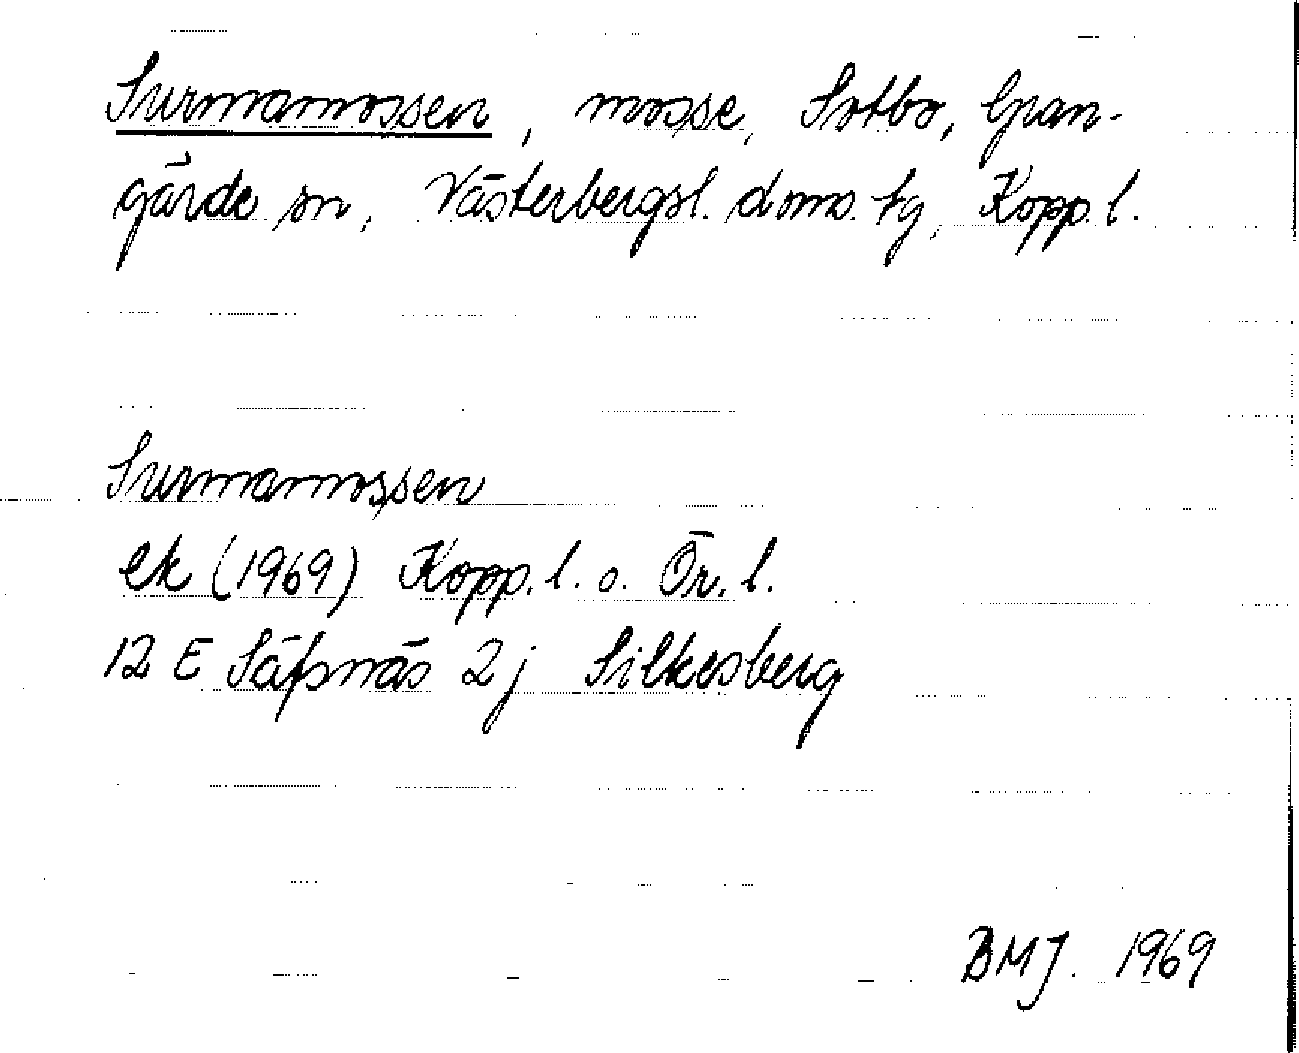 Surmamossen, mosse, Sotbo, Gran-
gärde sn, Västerbergsl. doms. tg, Kopp. l.
Surmamossen
ek (1969) Kopp. l. o. Ör. l.
12 E Säfsnäs 2 j Silkesberg
BMJ. 1969